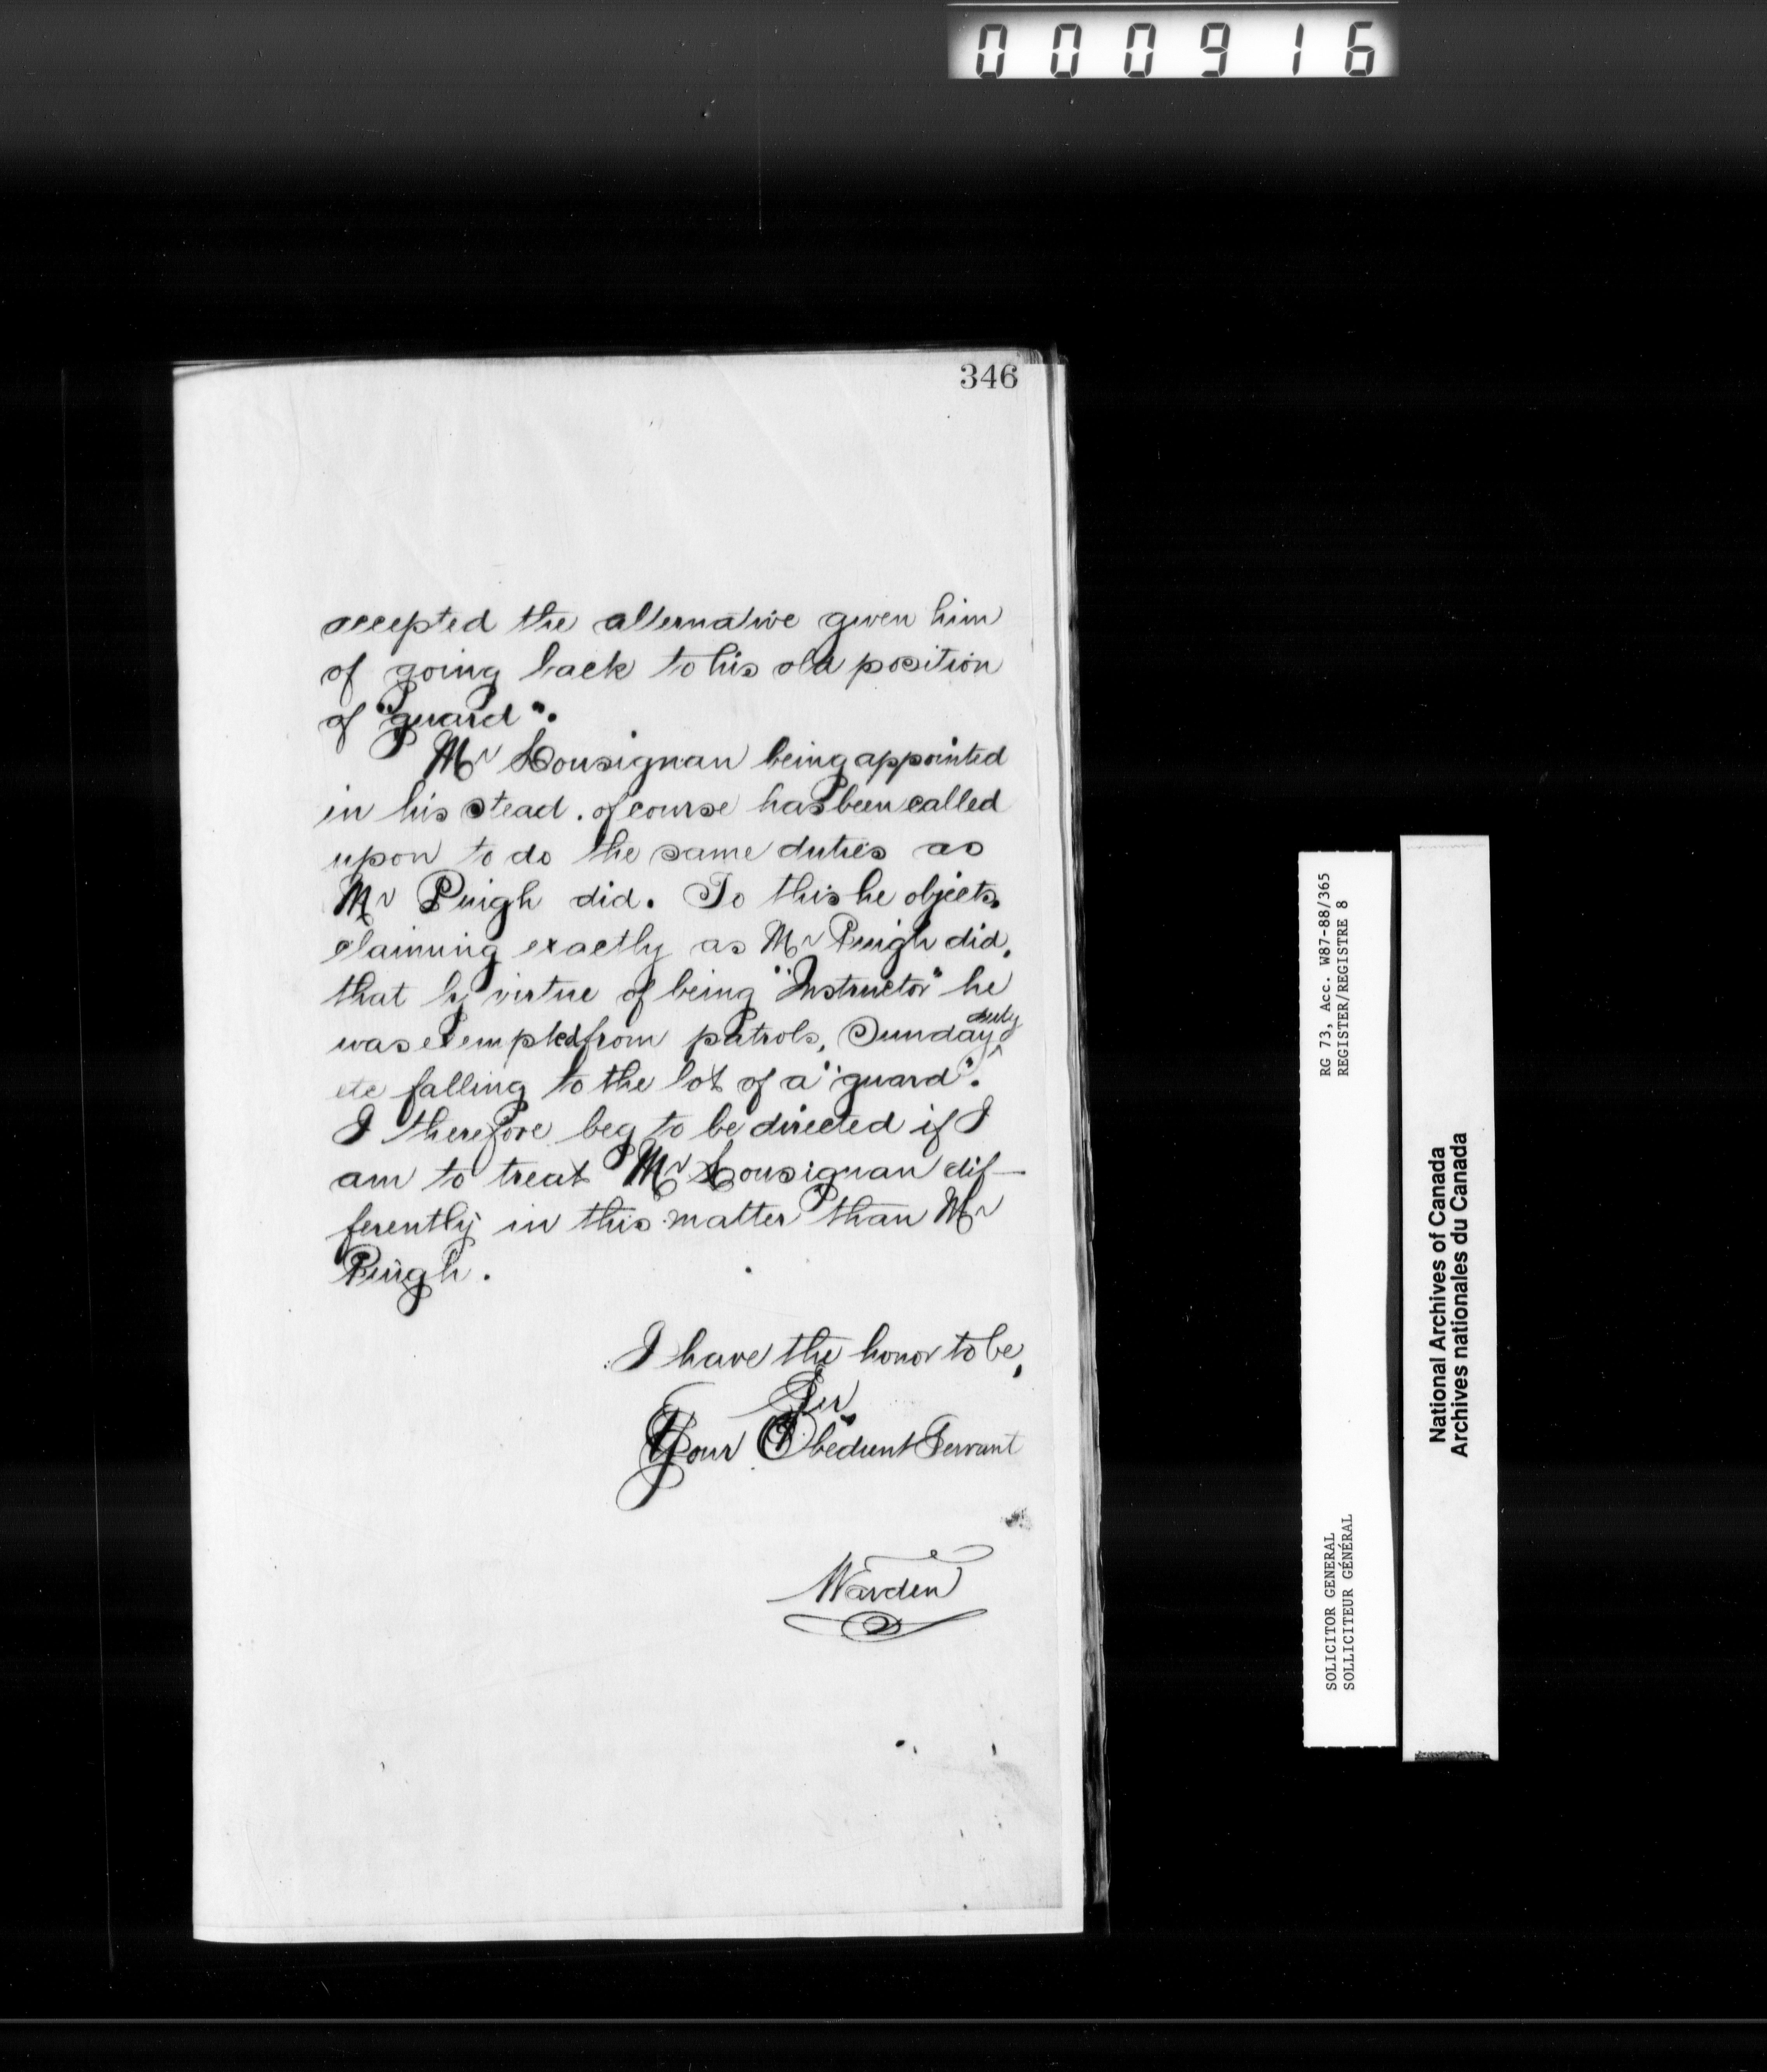 000916
346
accepted the alternative given him
of going back to his old position
of "guard".
Mr Lousignan being appointed
in his stead. of course has been called
upon to do the same duties as
Mr Pugh did. To this he objects,
claiming exactly as Mr Pugh did,
that by virtue of being "Instructor" he
was exempted from patrols, Sunday duty
etc falling to the lot of a "guard".
I therefore beg to be directed if I
am to treat Mr Lousignan dif-
ferently in this matter than Mr
Pugh.
I have the honor to be,
Sir
Your Obedient Servant
Warden
RG 73, Acc. W87-88/365
REGISTER/REGISTRE 8
SOLICITOR GENERAL
SOLLICITEUR GÉNÉRAL
National Archives of Canada
Archives nationales du Canada